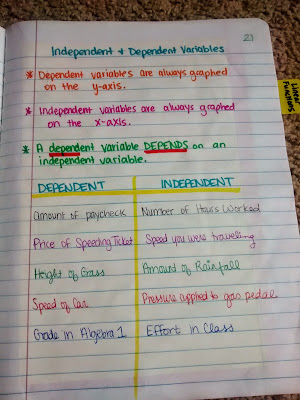 21
Independent + Dependent Variables
* Dependent variables are always graphed
on the y-axis.
* Independent variables are always graphed
on the x-axis.
* A dependent variable DEPENDS on an
independent variable.
Linear
Functions
DEPENDENT INDEPENDENT
Amount of paycheck Number of Hours Worked
Price of Speeding Ticket Speed you were traveling
Height of Grass Amount of Rainfall
Speed of Car Pressure applied to gas pedal
Grade in Algebra 1 Effort in Class